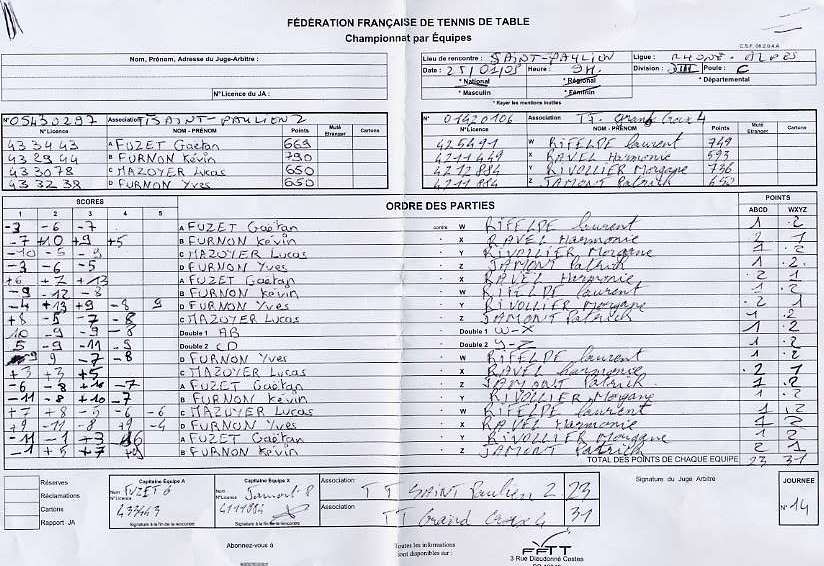 FÉDÉRATION FRANÇAISE DE TENNIS DE TABLE
Championnat par Équipes
C.S.F. 06.2.9.4.A
Nom, Prénom, Adresse du Juge-Arbitre :
N°Licence du JA :
Lieu de rencontre : SAINT-PAULIEN Ligue : RHONE-ALPES
Date : 25/01/05 Heure : 9H Division : Poule : C
* National * Régional * Départemental
* Masculin * Féminin
* Rayer les mentions inutiles
N° 05430297 Association TT SAINT-PAULIEN 2
N°Licence NOM - PRÉNOM Points Muté Etranger Cartons
433443 A FUZET Gaëtan 669
432944 B FURNON Kévin 790
433078 C MAZOYER Lucas 650
433238 D FURNON Yves 650
N° 01420106 Association TT. Grand Croix 4
N°Licence NOM - PRÉNOM Points Muté Etranger Cartons
425491 W RIFELDE laurent 749
4211449 X RAVEL Harmonie 593
4212884 Y RIVOLLIER Morgane 736
4211884 Z JAMONT Patrick 650
SCORES ORDRE DES PARTIES POINTS
1 2 3 4 5 ABCD WXYZ
-3 -6 -7 A FUZET Gaëtan contre W RIFELDE laurent 1 2
-7 +10 +9 +5 B FURNON Kévin X RAVEL Harmonie 2 1
-10 -5 -9 C MAZOYER Lucas Y RIVOLLIER Morgane 1 2
-3 -6 -5 D FURNON Yves Z JAMONT Patrick 1 2
+6 +7 +13 A FUZET Gaëtan X RAVEL Harmonie 2 1
-9 -12 -3 B FURNON Kévin W RIFELDE laurent 1 2
-4 +13 +9 -8 9 D FURNON Yves Y RIVOLLIER Morgane 2 1
+8 -5 -7 -8 C MAZOYER Lucas Z JAMONT Patrick 1 2
10 -9 -9 -8 Double 1 AB Double 1 W-X 1 2
5 -9 -11 -9 Double 2 CD Double 2 Y-Z 1 2
9 -7 -8 D FURNON Yves W RIFELDE laurent 1 2
+3 +3 +5 C MAZOYER Lucas X RAVEL harmonie 2 1
-6 -8 +10 -7 A FUZET Gaëtan Z JAMONT Patrick 1 2
-11 -8 +10 -7 B FURNON Kévin Y RIVOLLIER Morgane 1 2
+7 +8 -5 -6 -5 C MAZOYER Lucas W RIFELDE laurent 1 2
+9 -11 -8 +9 -4 D FURNON Yves X RAVEL Harmonie 1 2
-11 -1 +3 A FUZET Gaëtan Y RIVOLLIER Morgane 1 2
-1 +5 +7 B FURNON Kevin Z JAMONT Patrick 2 1
TOTAL DES POINTS DE CHAQUE EQUIPE 23 31
Réserves
Réclamations
Cartons
Rapport JA
Capitaine Équipe A
Nom FUZET G
N°Licence 433443
Signature à la fin de la rencontre
Capitaine Equipe X
Nom Jamont P
N°Licence 4211884
Signature à la fin de la rencontre
Association : TT SAINT Paulien 2 23
Association : TT Grand Croix 4 31
Signature du Juge Arbitre
JOURNEE
N° 14
Abonnez-vous à
Toutes les informations
sont disponibles sur :
FFTT
3 Rue Dieudonné Costes